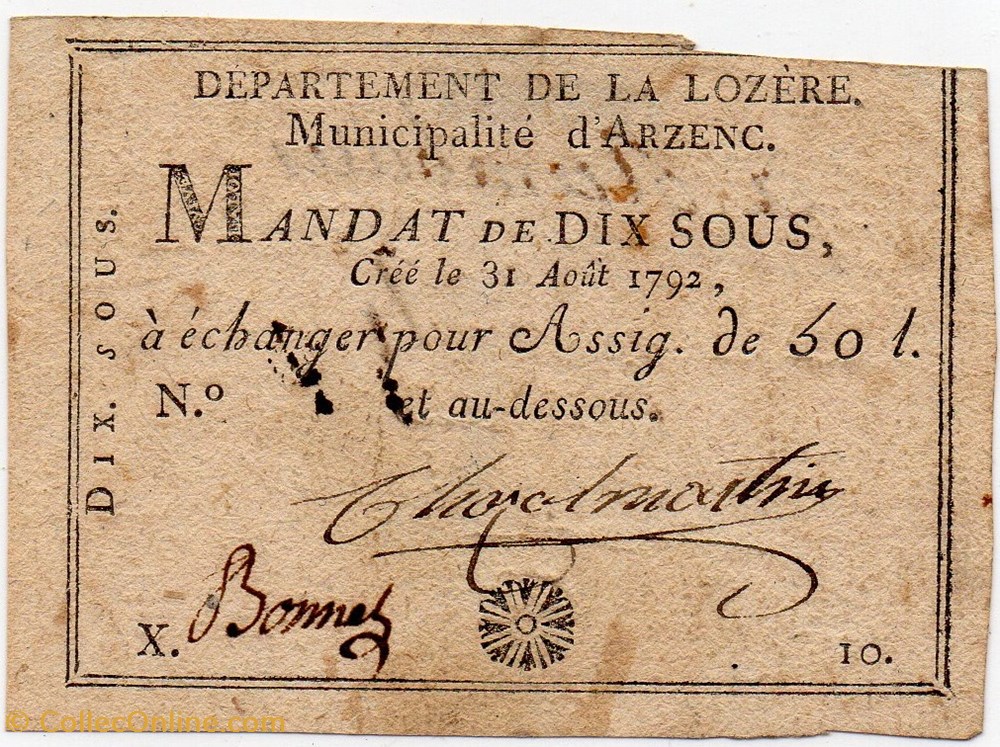 DÉPARTEMENT DE LA LOZÈRE.
Municipalité d'ARZENC.
MANDAT DE DIX SOUS,
Créé le 31 Août 1792,
à échanger pour Assig. de 50 l.
N.º et au-dessous.
DIX. SOUS.
Bonnet
X.
10.
© CollecOnline.com